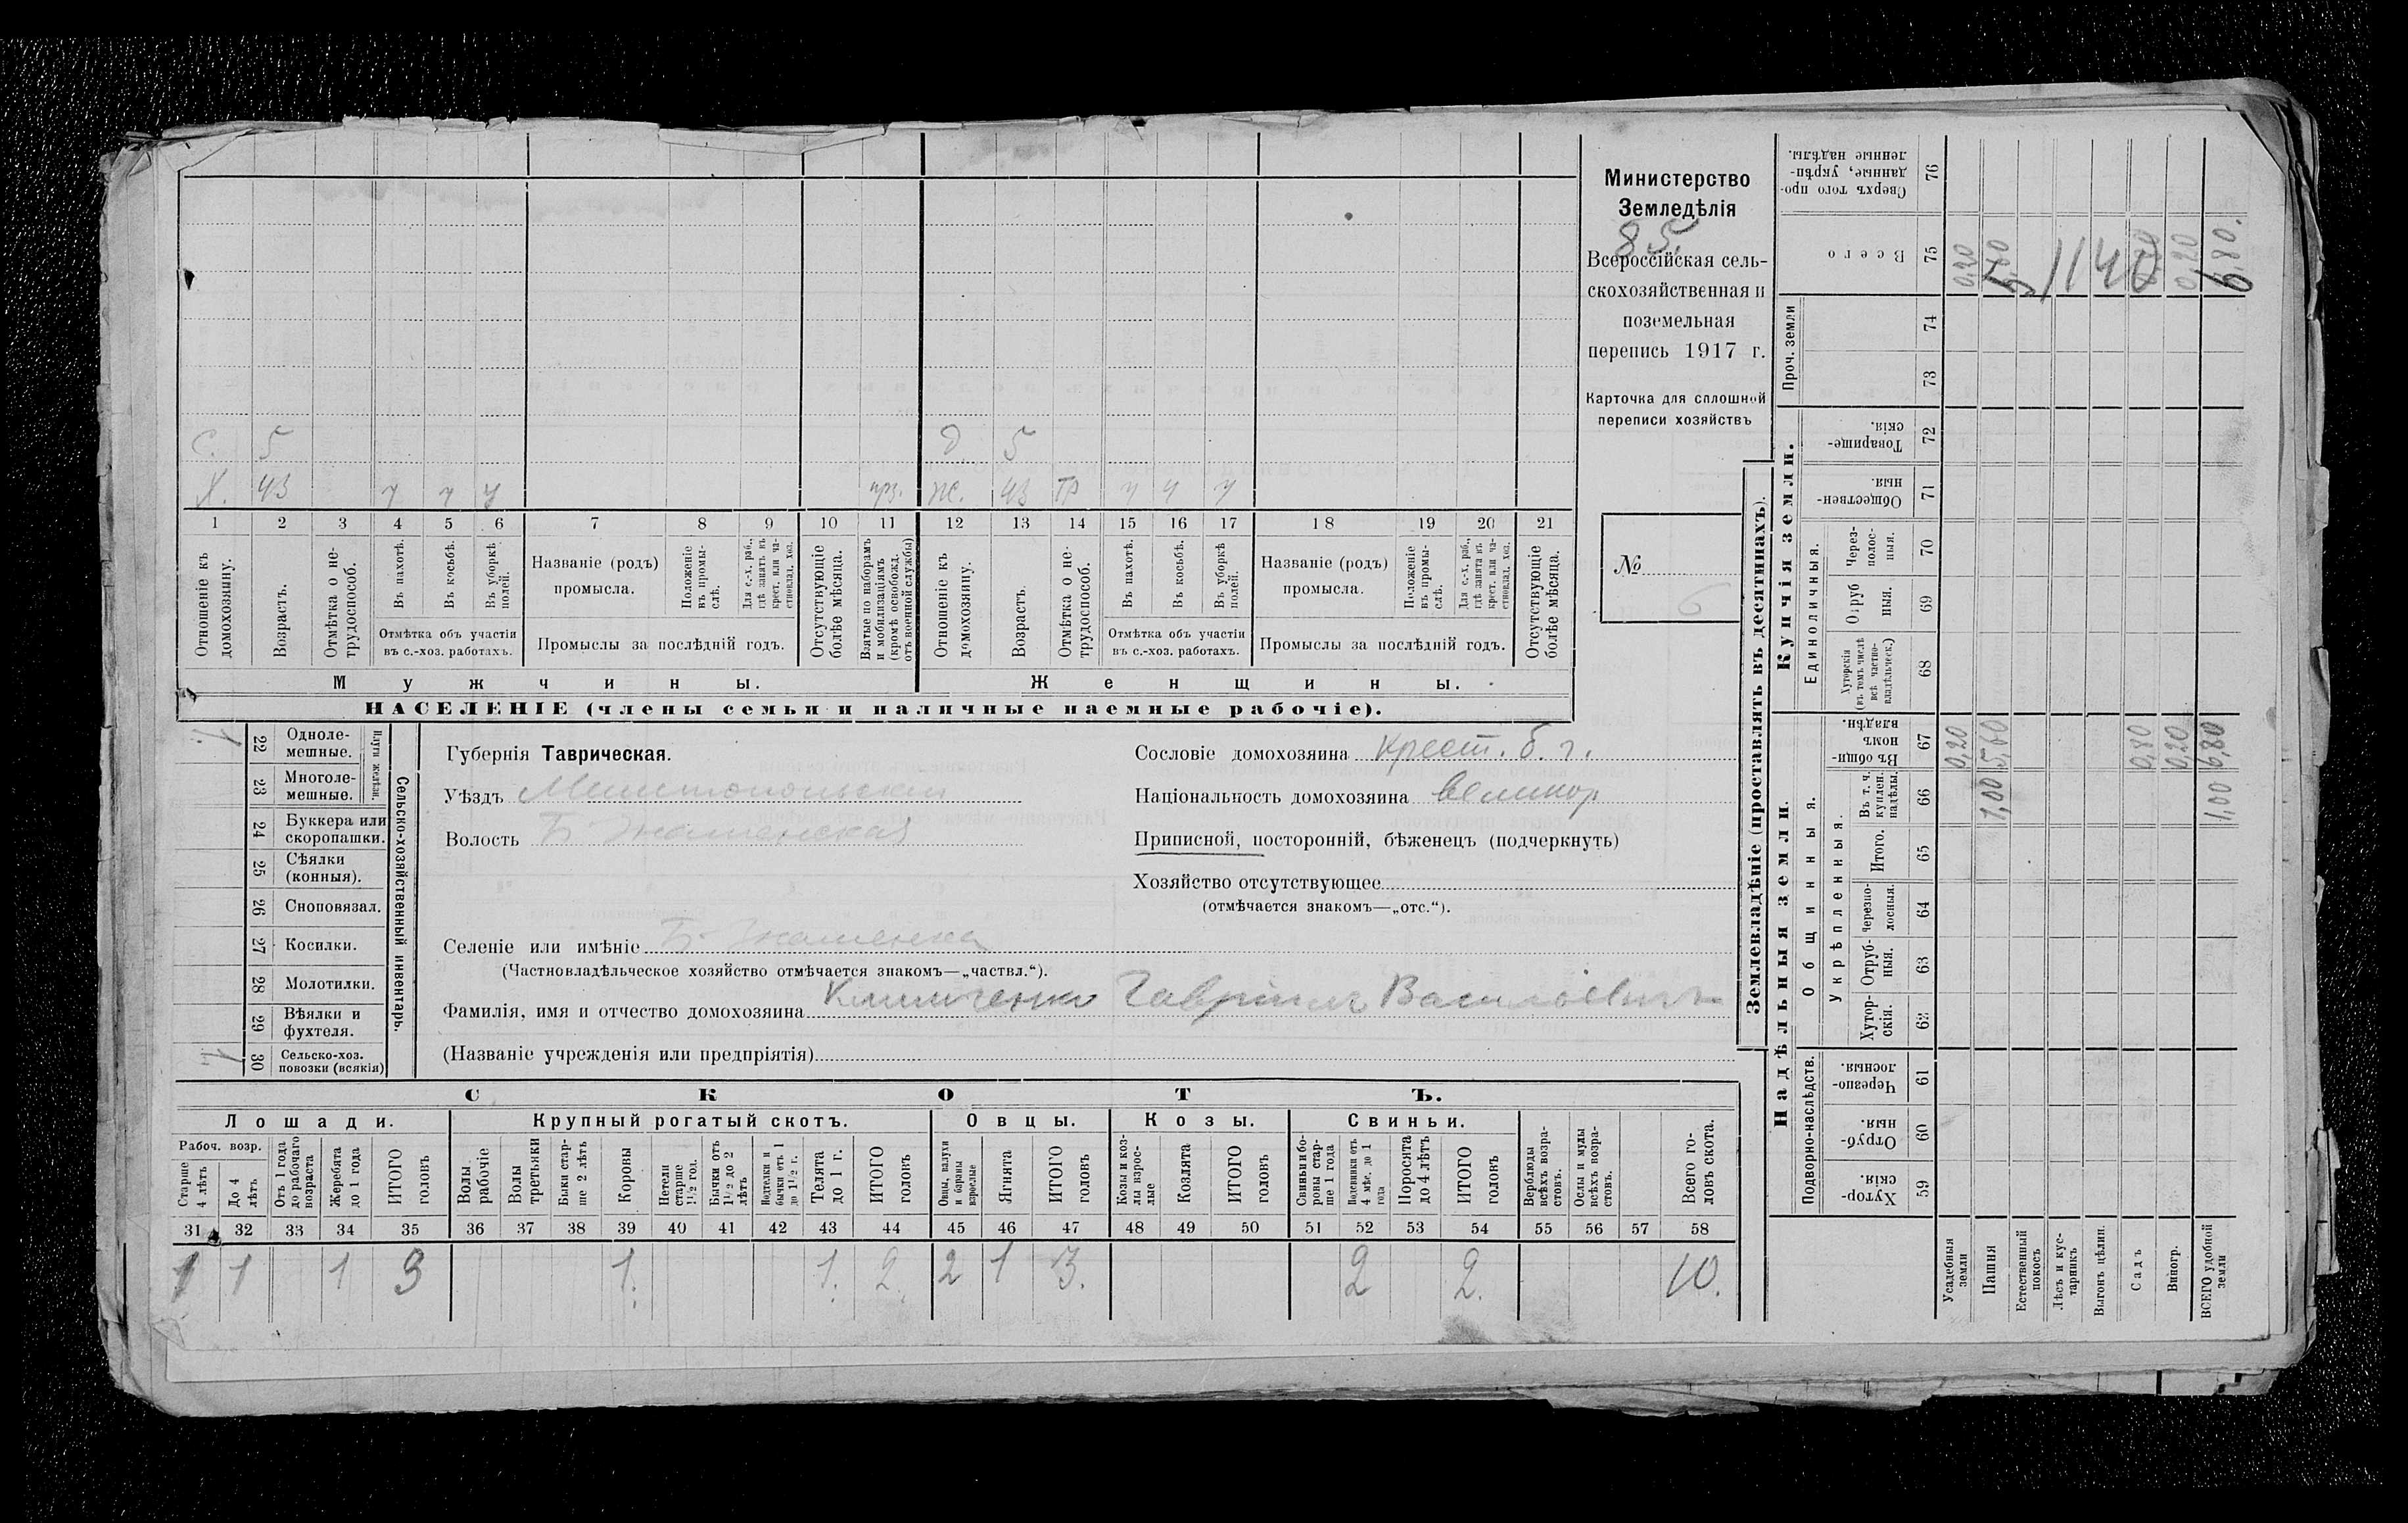 С. 5 д 5
Х. 43 ч ч ч прз. Ж. 43 тр ч ч ч
1 2 3 4 5 6 7 8 9 10 11 12 13 14 15 16 17 18 19 20 21
Отношеніе къ домохозяину.
Возрастъ.
Отмѣтка о нетрудоспособ.
Въ пахотѣ.
Въ косьбѣ.
Въ уборкѣ полей.
Отмѣтка объ участіи
въ с.-хоз. работахъ.
Названіе (родъ)
промысла.
Положеніе въ промыслѣ.
Для с.-х. раб., гдѣ занятъ въ крест. или частновлад. хоз.
Промыслы за послѣдній годъ.
Отсутствующіе болѣе мѣсяца.
Взятые по наборамъ и мобилизаціямъ (кромѣ освобожд. отъ военной службы)
Отношеніе къ домохозяину.
Возрастъ.
Отмѣтка о нетрудоспособ.
Въ пахотѣ.
Въ косьбѣ.
Въ уборкѣ полей.
Отмѣтка объ участіи
въ с.-хоз. работахъ.
Названіе (родъ)
промысла.
Положеніе въ промыслѣ.
Для с.-х. раб., гдѣ занята въ крест. или частновлад. хоз.
Промыслы за послѣдній годъ.
Отсутствующіе болѣе мѣсяца.
Мужчины. Женщины.
НАСЕЛЕНІЕ (члены семьи и наличные наемные рабочіе).
Министерство
Земледѣлія
85.
Всероссійская сель-
скохозяйственная и
поземельная
перепись 1917 г.
Карточка для сплошной
переписи хозяйствъ
№ 6
1 22 Одноле-
мешные.
23 Многоле-
мешные.
Плуги желѣзн.
24 Буккера или
скоропашки.
25 Сѣялки
(конныя).
26 Сноповязал.
27 Косилки.
28 Молотилки.
29 Вѣялки и
фухтеля.
1 30 Сельско-хоз.
повозки (всякія)
Сельско-хозяйственный инвентарь.
Губернія Таврическая.
Уѣздъ Мелитопольскій
Волость Б-Знаменская
Сословіе домохозяина Крест. б. г.
Національность домохозяина великор
Приписной, посторонній, бѣженецъ (подчеркнуть)
Хозяйство отсутствующее
(отмѣчается знакомъ—„отс.“).
Селеніе или имѣніе Б-Знаменка
(Частновладѣльческое хозяйство отмѣчается знакомъ—„частвл.“).
Фамилія, имя и отчество домохозяина Гавріилъ Васильевичъ
(Названіе учрежденія или предпріятія)
СКОТЪ.
Лошади. Крупный рогатый скотъ. Овцы. Козы. Свиньи.
Рабоч. возр.
Старше 4 лѣтъ
До 4 лѣтъ
Отъ 1 года до рабочаго возраста
Жеребята до 1 года
ИТОГО головъ
Волы рабочіе
Волы третьяки
Быки старше 2 лѣтъ
Коровы
Нетели старше 1½ год.
Бычки отъ 1½ до 2 лѣтъ
Подтелки и бычки отъ 1 до 1½ г.
Телята до 1 г.
ИТОГО головъ
Овцы, валухи и бараны взрослые
Ягнята
ИТОГО головъ
Козы и козлы взрослые
Козлята
ИТОГО головъ
Свиньи и боровы старше 1 года
Подсвинки отъ 4 мѣс. до 1 года
Поросята до 4 лѣтъ
ИТОГО головъ
Верблюды всѣхъ возрастовъ.
Ослы и мулы всѣхъ возрастовъ.
Всего головъ скота.
31 32 33 34 35 36 37 38 39 40 41 42 43 44 45 46 47 48 49 50 51 52 53 54 55 56 57 58
1 1 1 3 1. 1. 2. 2 1 3. 2 2. 10.
Землевладѣніе (проставлять въ десятинахъ).
Купчія земли.
Надѣльныя земли.
Сверхъ того проданные, укрѣпленные надѣлы. 76
Всего 75 0,20 1140 0,20 6,80.
Проч. земли 74
73
Товарищескія. 72
Общественныя. 71
Единоличныя.
Черезполосныя. 70
Отрубныя. 69
Хуторскія (въ темъ числѣ всѣ частновладѣльческ.) 68
Общинныя.
Въ общинномъ владѣн. 67 0,20 5,60 0,80 0,20 6,80
Укрѣпленныя.
Въ т. ч. куплен. надѣлы. 66 1,00 1,00
Итого. 65
Черезполосныя. 64
Отрубныя. 63
Хуторскія. 62
Подворно-наслѣдств.
Черезполосныя. 61
Отрубныя. 60
Хуторскія. 59
Усадебныя земли
Пашня
Естественный покосъ
Лѣсъ и кустарникъ
Выгонъ цѣлин.
Садъ
Виногр.
ВСЕГО удобной земли